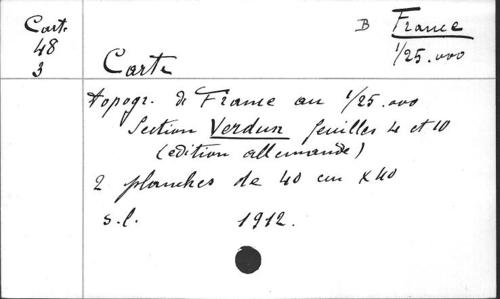 Cart.
48
3
B France
1/25.000
Carte
topogr. de France au 1/25.000
Section Verdun feuilles 4 et 10
(édition allemande)
2 planches de 40 cm x 40
s.l. 1912.